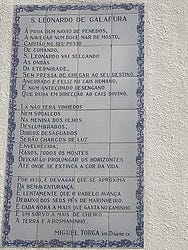 S. LEONARDO DE GALAFURA
À PROA DUM NAVIO DE PENEDOS,
A NAVEGAR NUM DOCE MAR DE MOSTO,
CAPITÃO NO SEU POSTO
DE COMANDO,
S. LEONARDO VAI SULCANDO
AS ONDAS
DA ETERNIDADE,
SEM PRESSA DE CHEGAR AO SEU DESTINO.
ANCORADO E FELIZ NO CAIS HUMANO,
É NUM ANTECIPADO DESENGANO
QUE RUMA EM DIRECÇÃO AO CAIS DIVINO.
LÁ NÃO TERÁ VINHEDOS
NEM SOCALCOS
NA MENINA DOS OLHOS
DESLUMBRADOS;
DOIROS DESAGUADOS
SERÃO CHARCOS DE LUZ
ENVELHECIDA;
RASOS, TODOS OS MONTES
DEIXARÃO PROLONGAR OS HORIZONTES
ATÉ ONDE SE EXTINGA A COR DA VIDA.
POR ISSO, É DEVAGAR QUE SE APROXIMA
DA BEM-AVENTURANÇA.
É LENTAMENTE QUE O RABELO AVANÇA
DEBAIXO DOS SEUS PÉS DE MARINHEIRO.
E CADA HORA A MAIS QUE GASTA NO CAMINHO
É UM SORVO A MAIS DE CHEIRO
A TERRA E A ROSMANINHO!
MIGUEL TORGA in: Diário IX